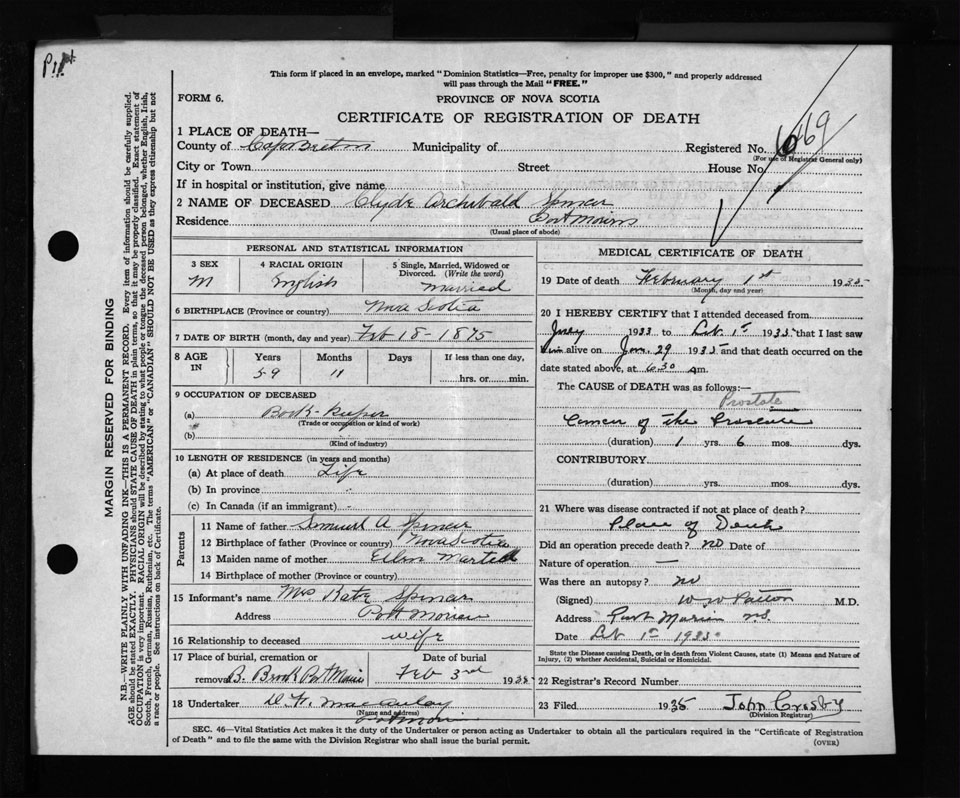 This form if placed in an envelope, marked "Dominion Statistics—Free, penalty for improper use $300," and properly addressed
will pass through the Mail "FREE."
FORM 6.
PROVINCE OF NOVA SCOTIA
CERTIFICATE OF REGISTRATION OF DEATH
1 PLACE OF DEATH—
County of Cape Breton Municipality of Registered No. 6469
(For use of Registrar General only)
City or Town Street House No.
If in hospital or institution, give name
2 NAME OF DECEASED Clyde Archibald Spencer
Residence Port Morien
(Usual place of abode)
PERSONAL AND STATISTICAL INFORMATION
3 SEX M
4 RACIAL ORIGIN English
5 Single, Married, Widowed or Divorced. (Write the word) Married
6 BIRTHPLACE (Province or country) Nova Scotia
7 DATE OF BIRTH (month, day and year) Feb 18-1875
8 AGE IN Years 59 Months 11 Days If less than one day, hrs. or min.
9 OCCUPATION OF DECEASED
(a) Book-Keeper
(Trade or occupation or kind of work)
(b)
(Kind of industry)
10 LENGTH OF RESIDENCE (in years and months)
(a) At place of death Life
(b) In province
(c) In Canada (if an immigrant)
Parents
11 Name of father Samuel A Spencer
12 Birthplace of father (Province or country) Nova Scotia
13 Maiden name of mother Ellen Martell
14 Birthplace of mother (Province or country)
15 Informant's name Mrs Kate Spencer
Address Port Morien
16 Relationship to deceased wife
17 Place of burial, cremation or removal B. Brook Port Morien
Date of burial Feb 3rd 1935
18 Undertaker Macaulay
(Name and address)
Port Morien
MEDICAL CERTIFICATE OF DEATH
19 Date of death February 1st 1935
(Month, day and year)
20 I HEREBY CERTIFY that I attended deceased from
1933 to Feb. 1st 1935 that I last saw
him alive on Jan. 29 1935 and that death occurred on the
date stated above, at 6.30 Am.
The CAUSE OF DEATH was as follows:—
Prostate
Cancer of the Prostate
(duration) 1 yrs. 6 mos. dys.
CONTRIBUTORY
(duration) yrs. mos. dys.
21 Where was disease contracted if not at place of death?
Place of Death
Did an operation precede death? no Date of
Nature of operation —
Was there an autopsy? no
(Signed) M.D.
Address Port Morien N.S.
Date Feb 1st 1935
State the Disease causing Death, or in death from Violent Causes, state (1) Means and Nature of
Injury, (2) whether Accidental, Suicidal or Homicidal.
22 Registrar's Record Number
23 Filed 1935 John Crosby
(Division Registrar)
SEC. 46—Vital Statistics Act makes it the duty of the Undertaker or person acting as Undertaker to obtain all the particulars required in the "Certificate of Registration
of Death" and to file the same with the Division Registrar who shall issue the burial permit.
(OVER)
MARGIN RESERVED FOR BINDING
N.B.—WRITE PLAINLY WITH UNFADING INK—THIS IS A PERMANENT RECORD. Every item of information should be carefully supplied.
AGE should be stated EXACTLY. PHYSICIANS should STATE CAUSE OF DEATH in plain terms, so that it may be properly classified. Exact statement of
OCCUPATION is very important. RACIAL ORIGIN will be described by stating to what people or tongue the deceased person belonged, whether English, Irish,
Scotch, French, German, Russian, Ruthenian, etc. The terms "AMERICAN" or "CANADIAN" SHOULD NOT BE USED as they express citizenship but not
a race or people. See instructions on back of Certificate.